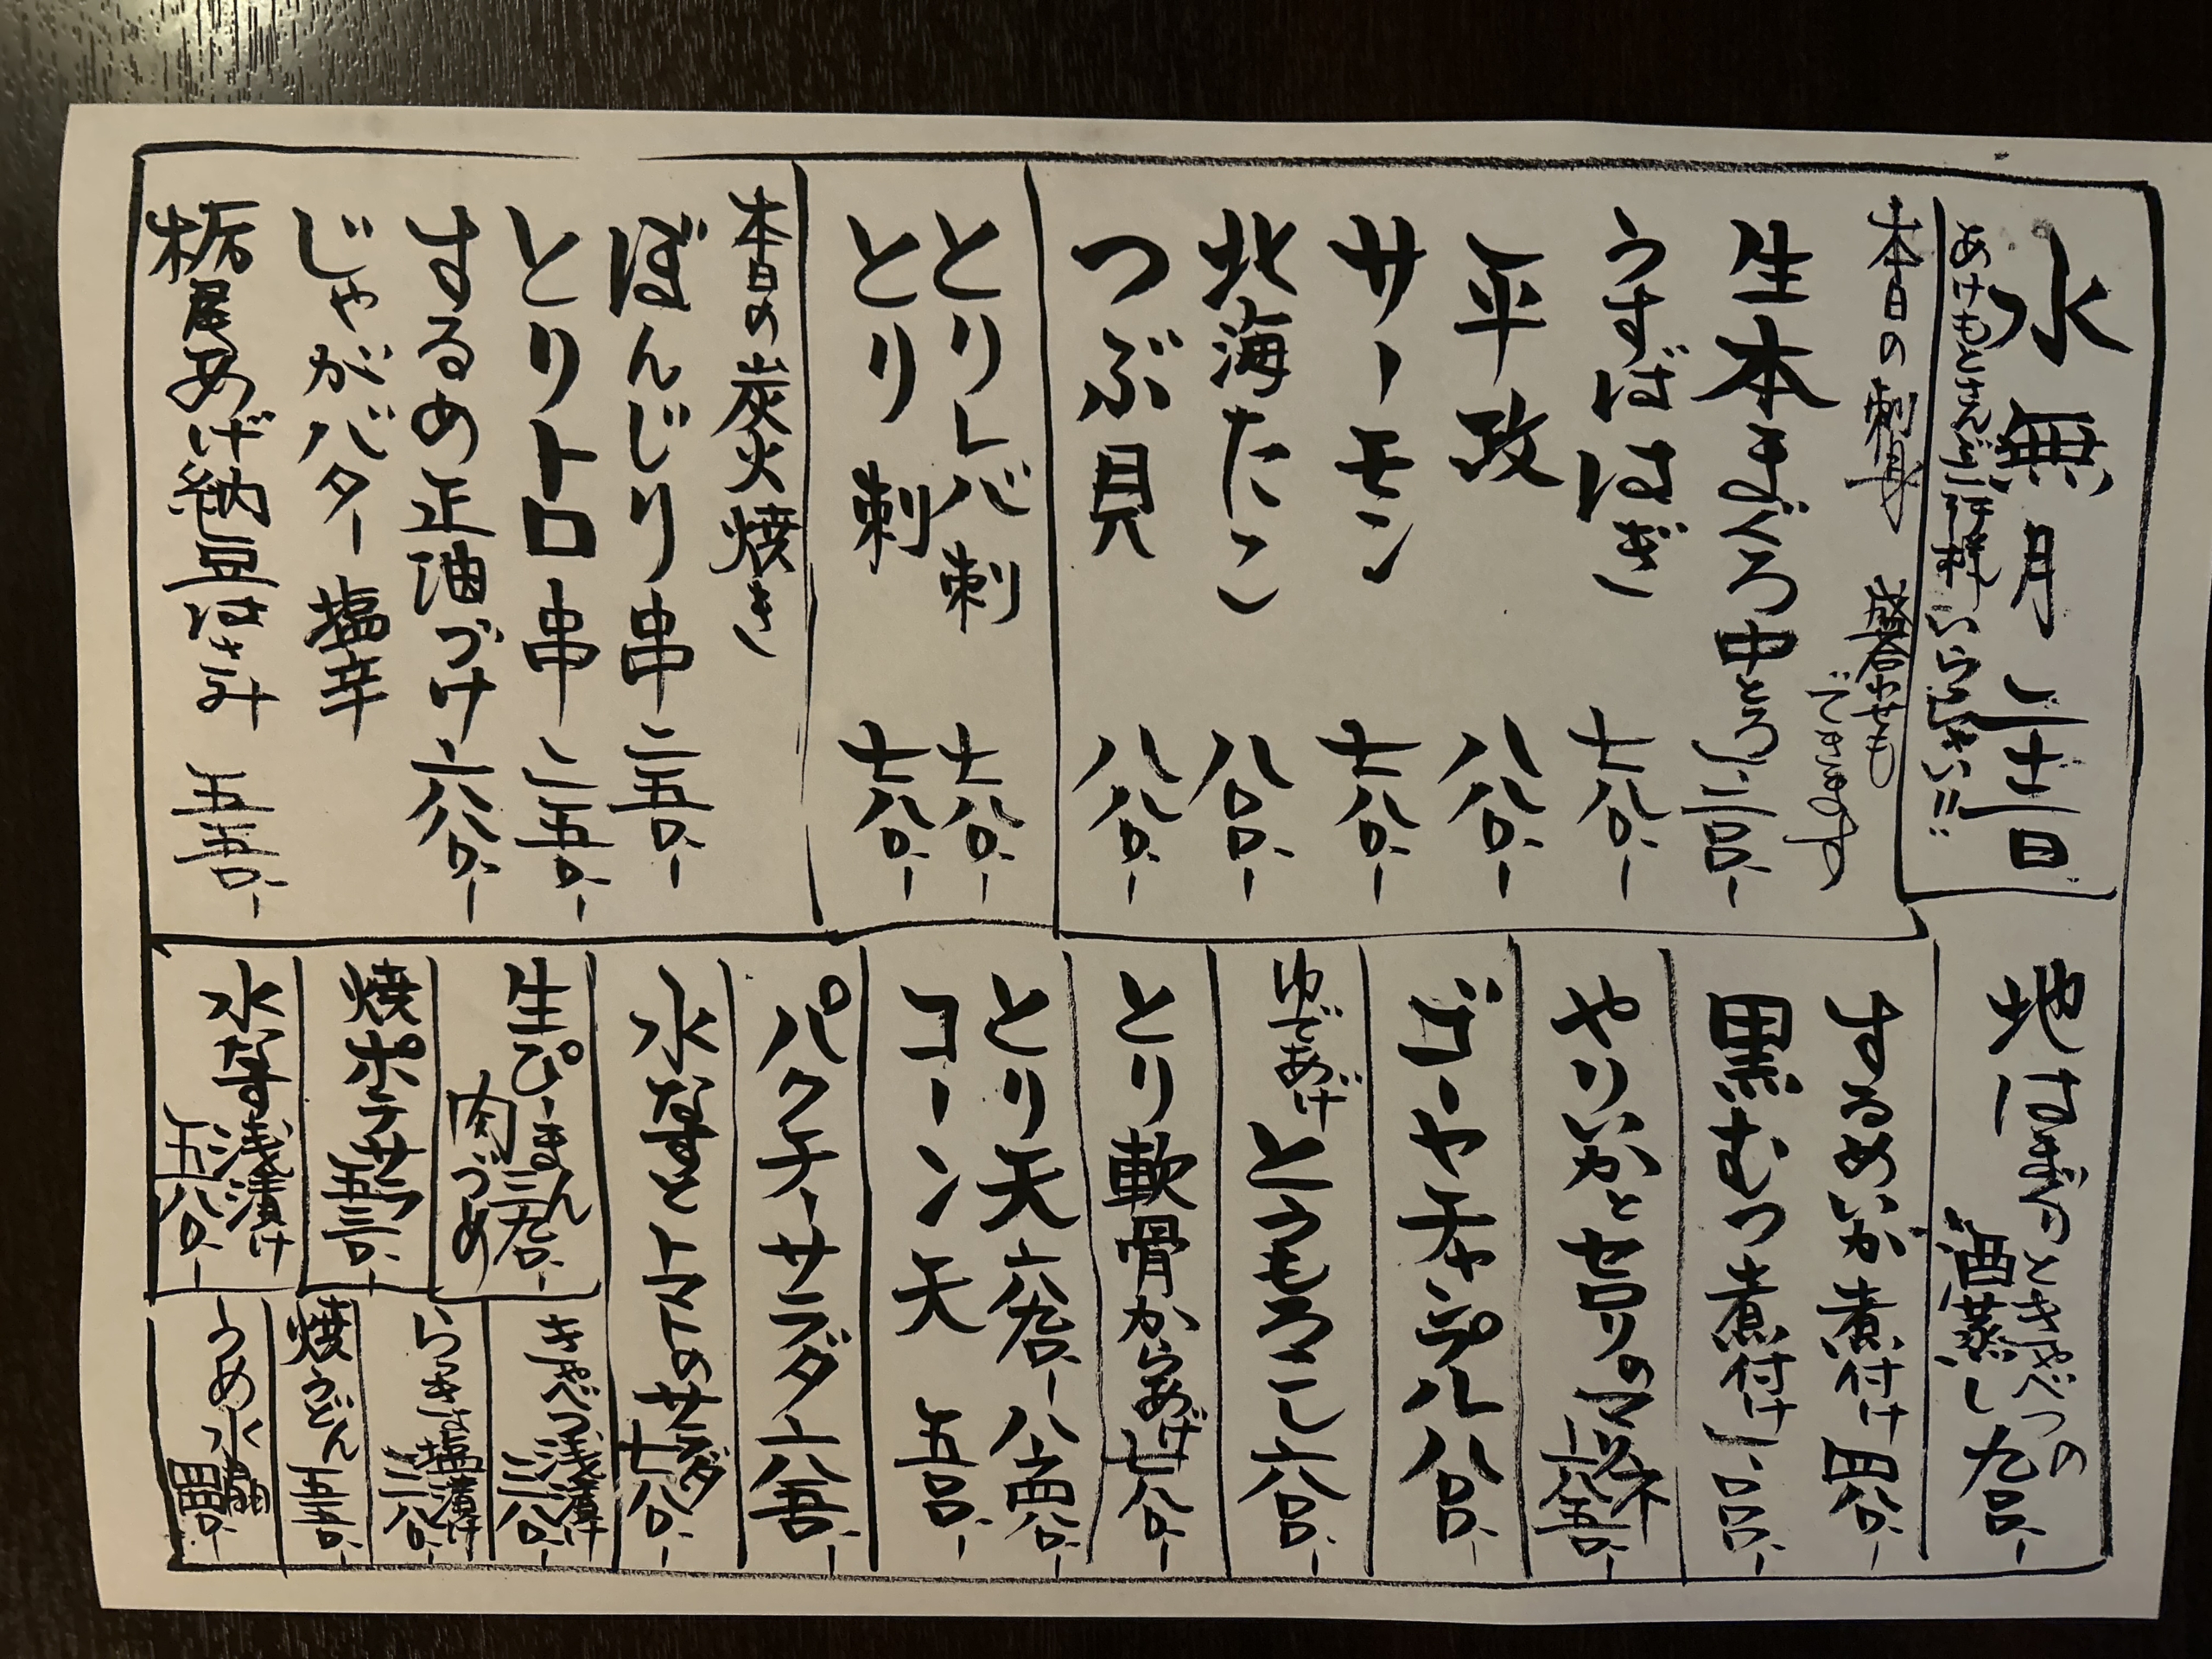 水無月二十二日
いらっしゃい!!
本日の刺身 盛合わせもできます
生本まぐろ中とろ 一、二八〇.-
うすばはぎ 七八〇.-
平政 八八〇.-
サーモン 七八〇.-
北海たこ 八八〇.-
つぶ貝 八八〇.-
とりレバ刺 七八〇.-
とり刺 七八〇.-
本日の炭火焼き
ぼんじり串 二五〇.-
とりトロ串 二五〇.-
するめ正油づけ 六八〇.-
じゃがバター塩辛
栃尾あげ納豆はさみ 五五〇.-
地はまぐりときゃべつの
酒蒸し 九八〇.-
するめいか煮付け 四八〇.-
黒むつ煮付け
やりいかとセロリのマリネ 六五〇.-
ゴーヤチャンプル 八八〇.-
ゆであげとうもろこし 六八〇.-
とり軟骨からあげ 七八〇.-
とり天 六九〇.-
コーン天 五八〇.-
パクチーサラダ 六八〇.-
水なすとトマトのサラダ 七八〇.-
生ぴーまん
肉づめ 三九〇.-
焼ポテサラ 五三〇.-
水なす浅漬け 五八〇.-
きゃべつ浅漬け 三八〇.-
らっきょ塩漬け 三八〇.-
焼うどん 五五〇.-
うめ水晶 四四〇.-